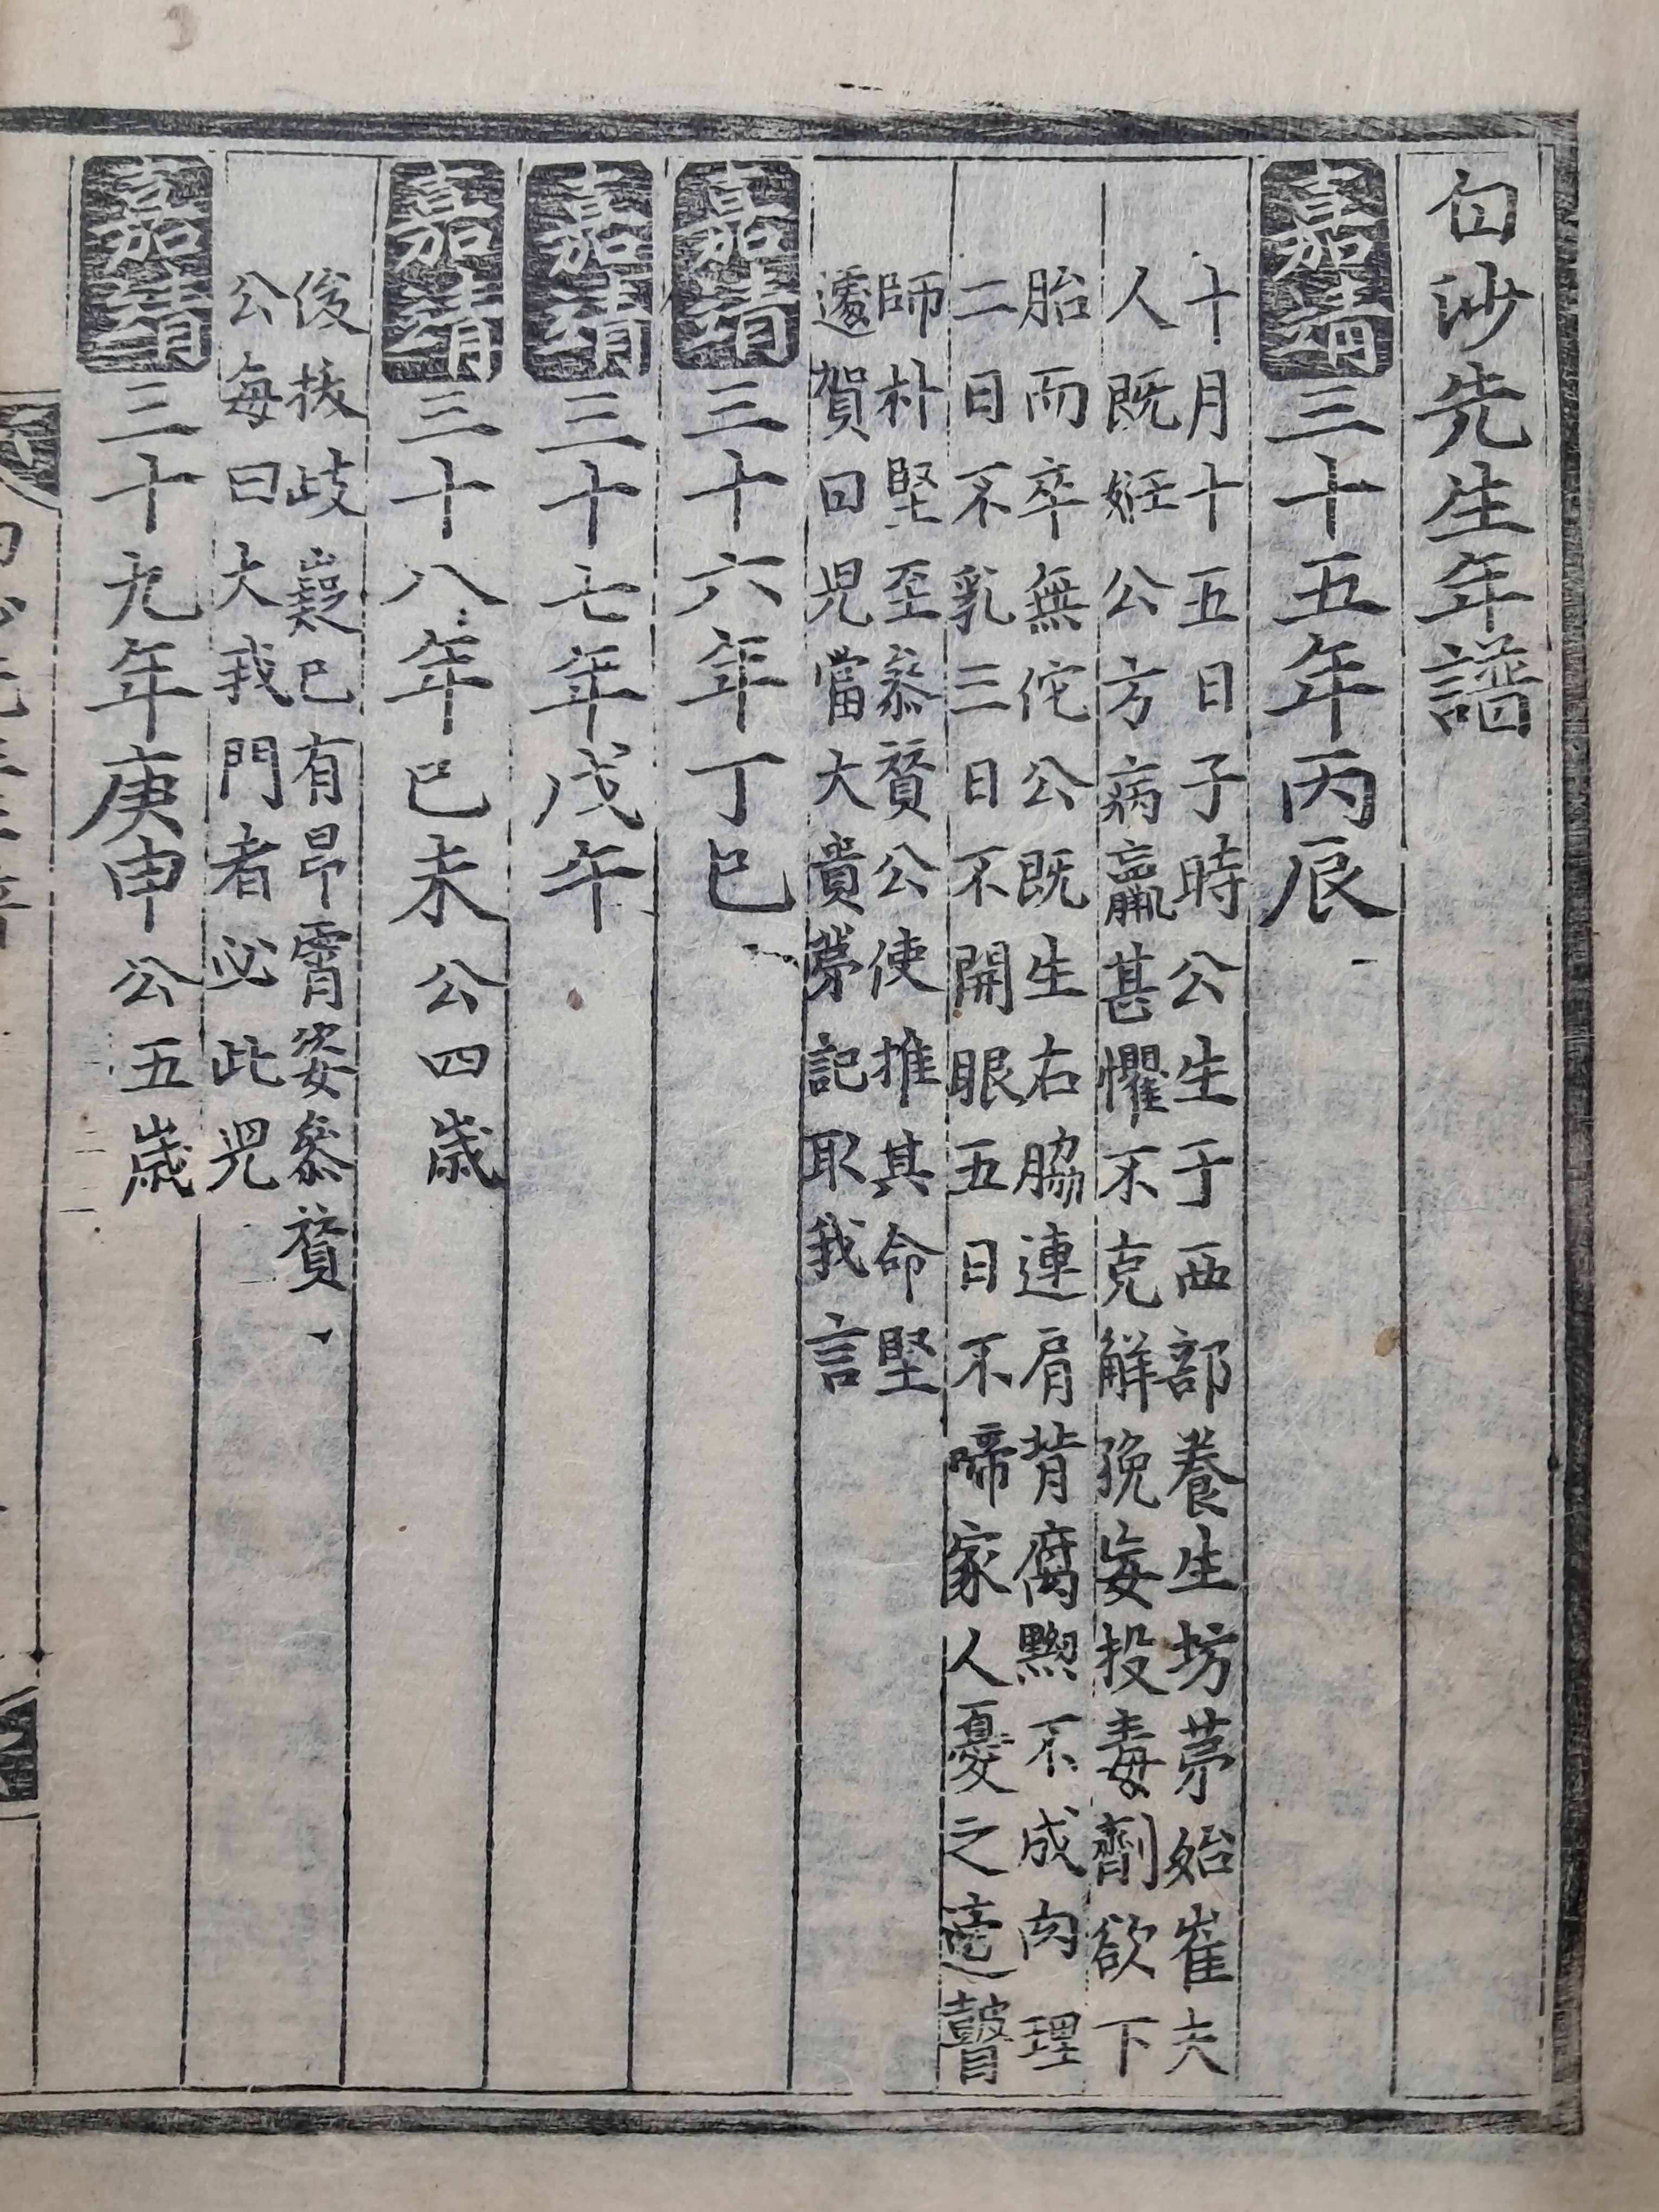 白沙先生年譜
嘉靖三十五年丙辰
十月十五日子時公生于西部養生坊苐始崔夫
人既姙公方病羸甚懼不克觧娩妄投毒劑欲下
胎而卒無佗公既生右脇連肩背腐黦不成肉理
二日不乳三日不開眼五日不啼家人憂之適瞽
師朴堅至叅贊公使推其命堅
遽賀曰児當大貴苐記取我言
嘉靖三十六年丁巳
嘉靖三十七年戊午
嘉靖三十八年己未公四歲
俊拔歧嶷已有昂霄姿叅贊
公每曰大我門者必此児
嘉靖三十九年庚申公五歲